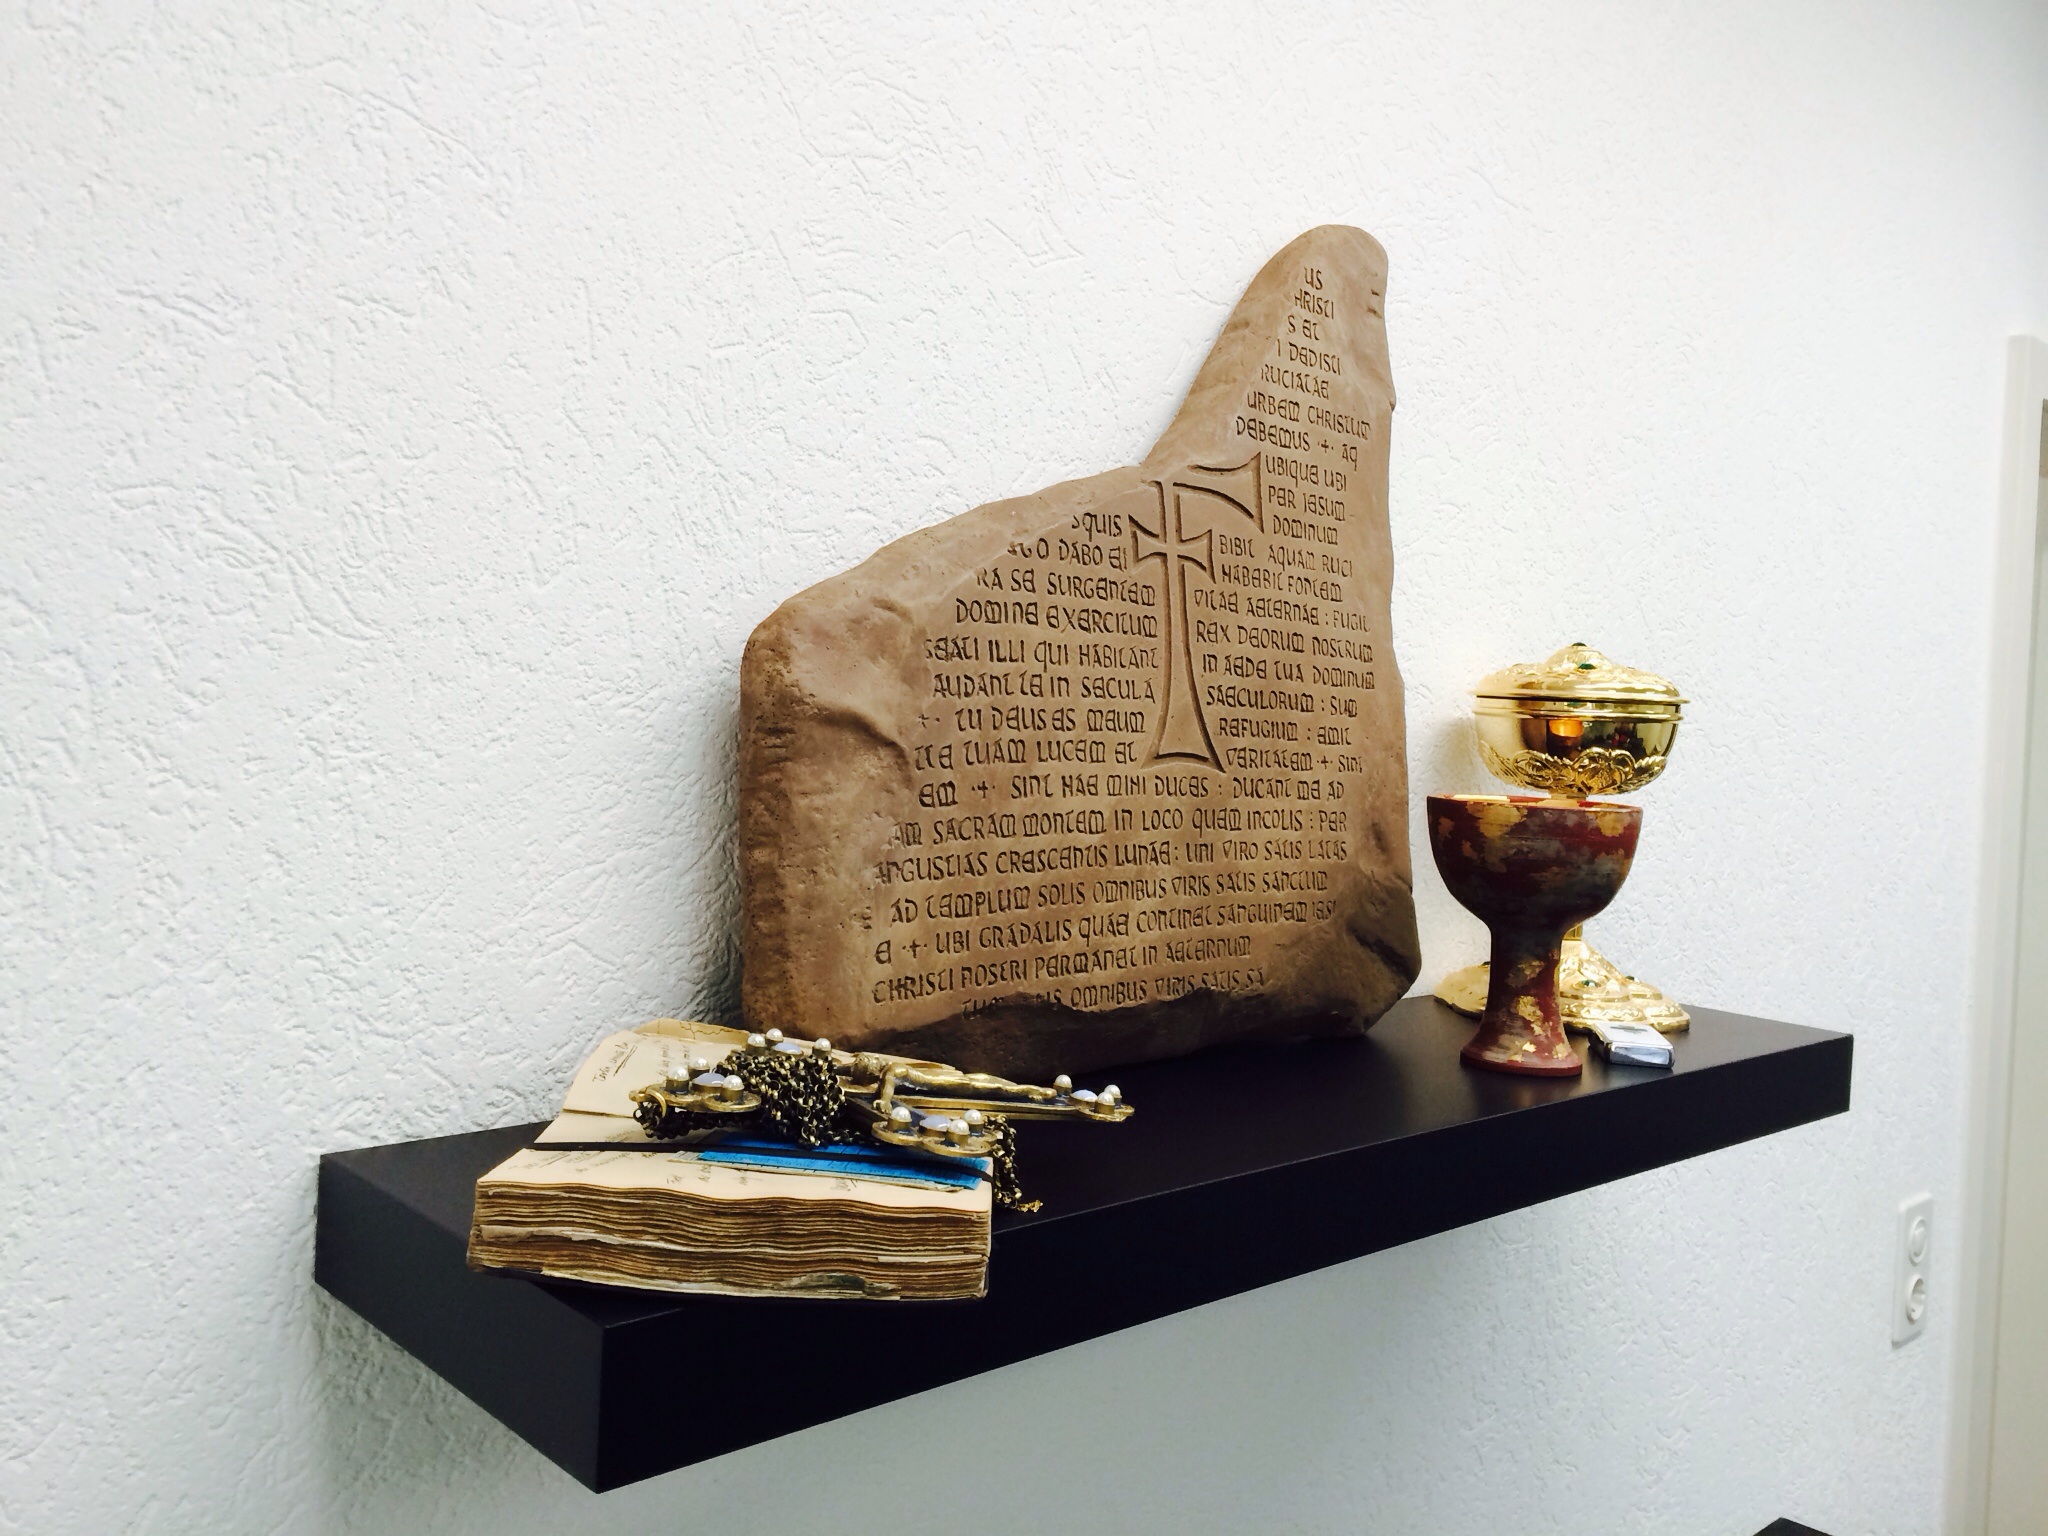 US
HRISTI
S ET
I DEDISTI
RUCIATAE
URBEM CHRISTUM
DEBEMUS + AQ
UBIQUE UBI
PER JESUM
DOMINUM
SQUIS
GO DABO EI
RA SE SURGENTEM
DOMINE EXERCITUM
SEATI ILLI QUI HABITANT
AUDANT TE IN SECULA
+ TU DEUS ES MEUM
TTE TUAM LUCEM ET
BIBIT AQUAM RUCI
HABEBIT FONTEM
VITAE AETERNAE : FUGIT
REX DEORUM NOSTRUM
IN AEDE TUA DOMINUM
SAECULORUM : SUM
REFUGIUM : EMIT
VERITATEM + SINT
EM + SINT HAE MIHI DUCES : DUCANT ME AD
AM SACRAM MONTEM IN LOCO QUEM INCOLIS : PER
ANGUSTIAS CRESCENTIS LUNAE : UNI VIRO SATIS LATAS
AD TEMPLUM SOLIS OMNIBUS VIRIS SATIS SANCTUM
E + UBI GRADALIS QUAE CONTINET SANGUINEM IESI
CHRISTI NOSTRI PERMANET IN AETERNUM
OMNIBUS VIRIS SATIS SA